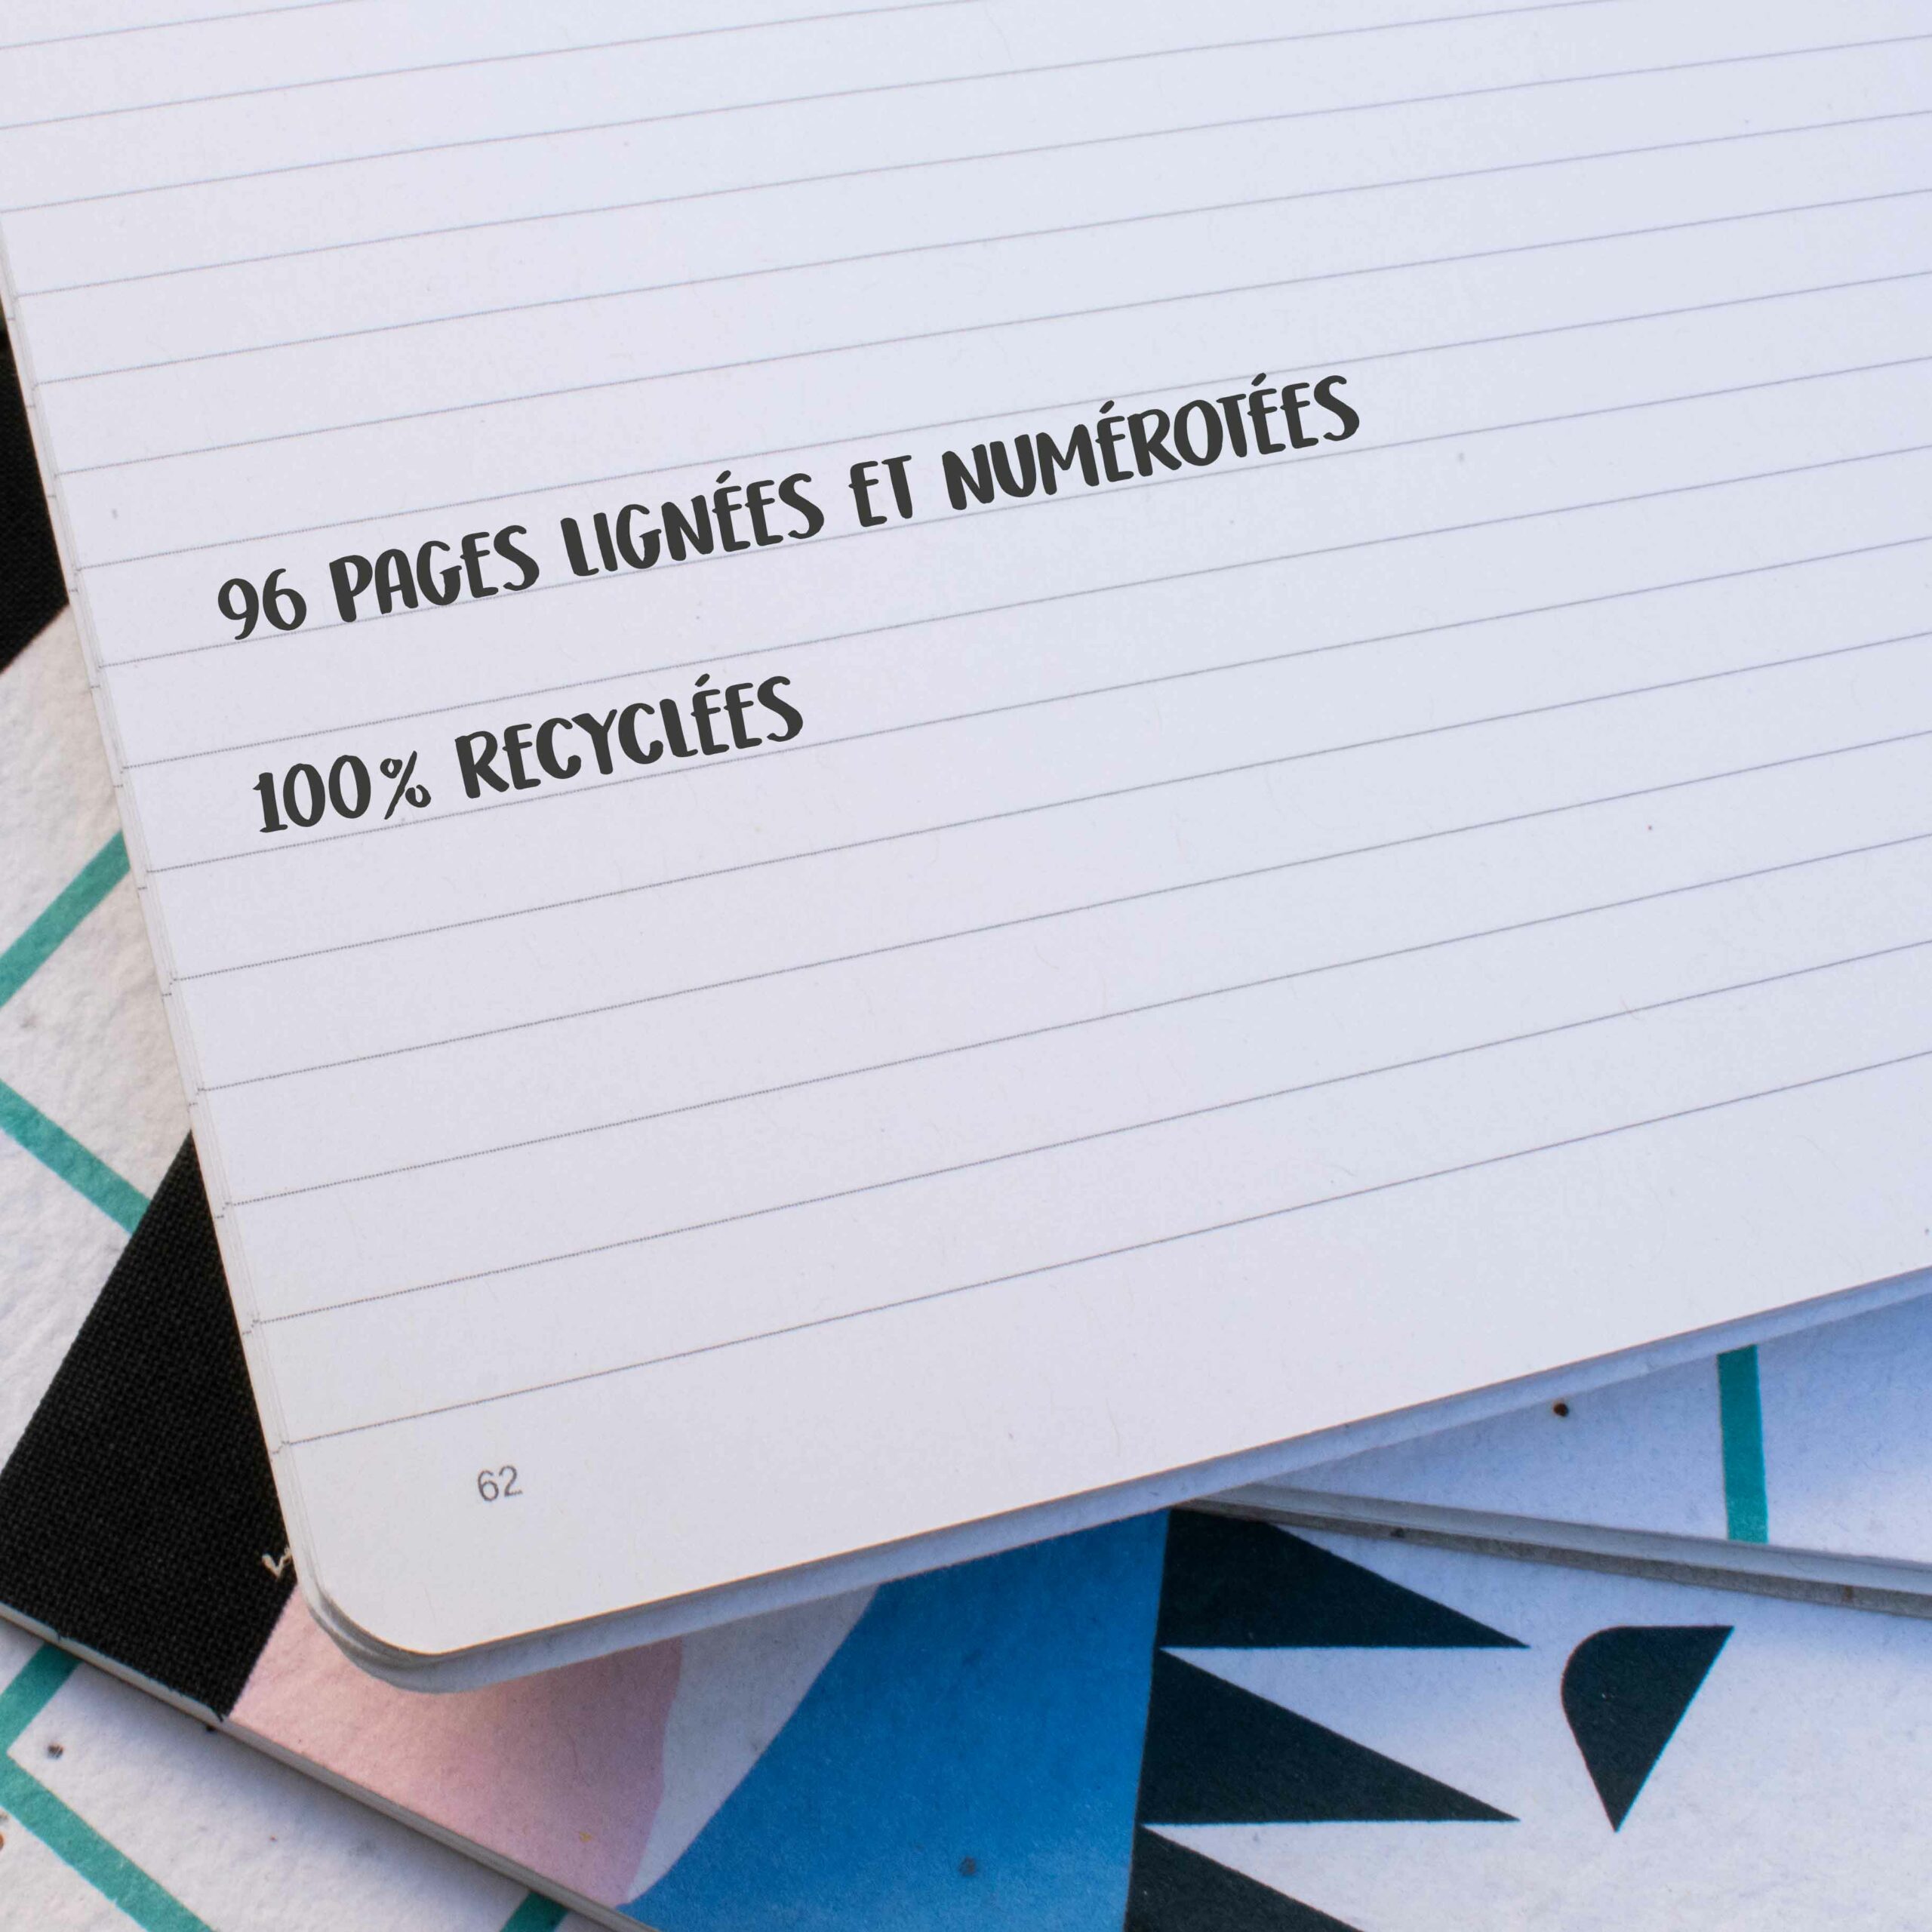 96 PAGES LIGNÉES ET NUMÉROTÉES
100% RECYCLÉES
62